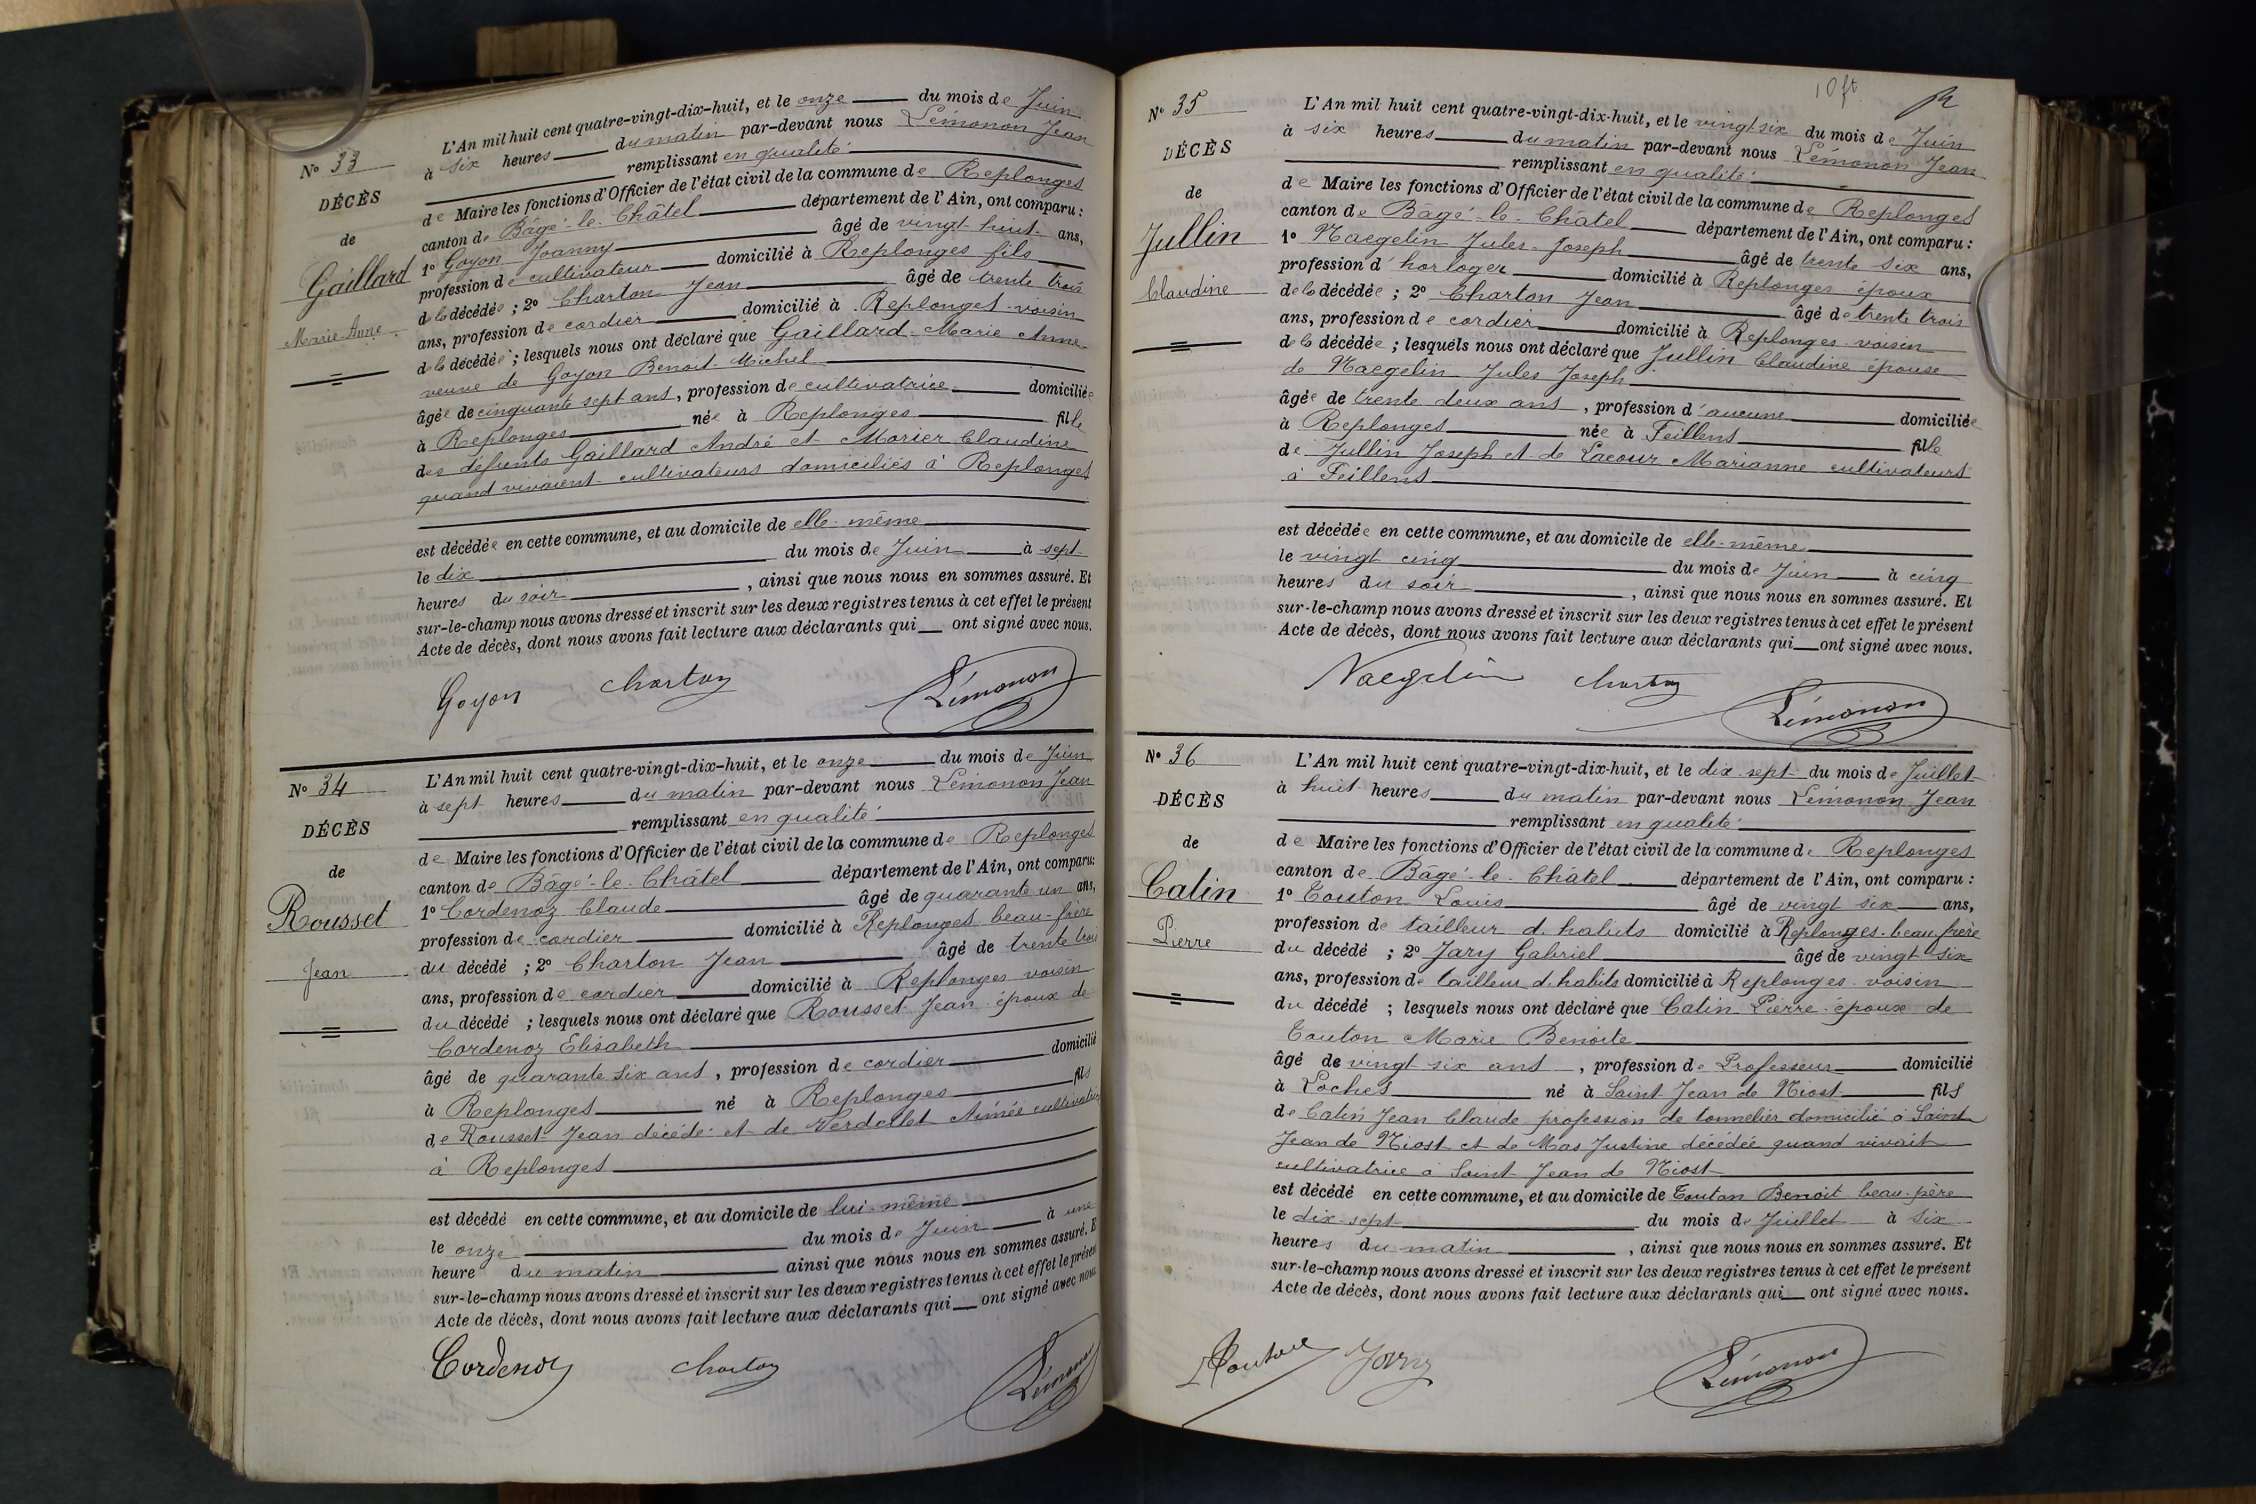 N° 33
DÉCÈS
de
Gaillard
Marie Anne
L'An mil huit cent quatre-vingt-dix-huit, et le onze du mois de Juin
à six heures du matin par-devant nous Lémonon Jean
remplissant en qualité
de Maire les fonctions d'Officier de l'état civil de la commune de Replonges
canton de Bâgé-le-Châtel département de l'Ain, ont comparu :
1° Goyon Joanny âgé de vingt huit ans,
profession de cultivateur domicilié à Replonges fils
de la décédée ; 2° Charton Jean âgé de trente trois
ans, profession de cordier domicilié à Replonges voisin
de la décédée ; lesquels nous ont déclaré que Gaillard Marie Anne
veuve de Goyon Benoit Michel
âgée de cinquante sept ans, profession de cultivatrice domiciliée
à Replonges née à Replonges fille
des défunts Gaillard André et Morier Claudine
quand vivaient cultivateurs domiciliés à Replonges
est décédée en cette commune, et au domicile de elle-même
le dix du mois de Juin à sept
heures du soir , ainsi que nous nous en sommes assuré. Et
sur-le-champ nous avons dressé et inscrit sur les deux registres tenus à cet effet le présent
Acte de décès, dont nous avons fait lecture aux déclarants qui ont signé avec nous.
Goyon Charton Lémonon
N° 34
DÉCÈS
de
Rousset
Jean
L'An mil huit cent quatre-vingt-dix-huit, et le onze du mois de Juin
à sept heures du matin par-devant nous Lémonon Jean
remplissant en qualité
de Maire les fonctions d'Officier de l'état civil de la commune de Replonges
canton de Bâgé-le-Châtel département de l'Ain, ont comparu:
1° Cordenoz Claude âgé de quarante un ans,
profession de cordier domicilié à Replonges beau-frère
du décédé ; 2° Charton Jean âgé de trente trois
ans, profession de cordier domicilié à Replonges voisin
du décédé ; lesquels nous ont déclaré que Rousset Jean époux de
Cordenoz Elisabeth
âgé de quarante six ans, profession de cordier domicilié
à Replonges né à Replonges fils
de Rousset Jean décédé et de Verdellet Aimée cultivatrice
à Replonges
est décédé en cette commune, et au domicile de lui-même
le onze du mois de Juin à une
heure du matin ainsi que nous nous en sommes assuré. E
sur-le-champ nous avons dressé et inscrit sur les deux registres tenus à cet effet le présent
Acte de décès, dont nous avons fait lecture aux déclarants qui ont signé avec nous
Cordenoz Charton Lémonon
10 ft
N° 35
DÉCÈS
de
Jullin
Claudine
L'An mil huit cent quatre-vingt-dix-huit, et le vingt six du mois de Juin
à six heures du matin par-devant nous Lémonon Jean
remplissant en qualité
de Maire les fonctions d'Officier de l'état civil de la commune de Replonges
canton de Bâgé-le-Châtel département de l'Ain, ont comparu :
1° Naegelin Jules Joseph âgé de trente six ans,
profession d'horloger domicilié à Replonges époux
de la décédée ; 2° Charton Jean âgé de trente trois
ans, profession de cordier domicilié à Replonges voisin
de la décédée ; lesquels nous ont déclaré que Jullin Claudine épouse
de Naegelin Jules Joseph
âgée de trente deux ans , profession d'aucune domiciliée
à Replonges née à Feillens fille
de Jullin Joseph et de Lacour Marianne cultivateurs
à Feillens
est décédée en cette commune, et au domicile de elle-même
le vingt cinq du mois de Juin à cinq
heures du soir , ainsi que nous nous en sommes assuré. Et
sur-le-champ nous avons dressé et inscrit sur les deux registres tenus à cet effet le présent
Acte de décès, dont nous avons fait lecture aux déclarants qui ont signé avec nous.
Naegelin Charton Lémonon
N° 36
DÉCÈS
de
Catin
Pierre
L'An mil huit cent quatre-vingt-dix-huit, et le dix sept du mois de Juillet
à huit heures du matin par-devant nous Lémonon Jean
remplissant en qualité
de Maire les fonctions d'Officier de l'état civil de la commune de Replonges
canton de Bâgé-le-Châtel département de l'Ain, ont comparu :
1° Touton Louis âgé de vingt six ans,
profession de tailleur d'habits domicilié à Replonges beau frère
du décédé ; 2° Jary Gabriel âgé de vingt six
ans, profession de tailleur d'habits domicilié à Replonges voisin
du décédé ; lesquels nous ont déclaré que Catin Pierre époux de
Touton Marie Benoite
âgé de vingt six ans , profession de Professeur domicilié
à Loches né à Saint Jean de Niost fils
de Catin Jean Claude profession de tonnelier domicilié à Saint
Jean de Niost et de Mas Justine décédée quand vivait
cultivatrice à Saint Jean de Niost
est décédé en cette commune, et au domicile de Touton Benoit beau-père
le dix sept du mois de Juillet à six
heures du matin , ainsi que nous nous en sommes assuré. Et
sur-le-champ nous avons dressé et inscrit sur les deux registres tenus à cet effet le présent
Acte de décès, dont nous avons fait lecture aux déclarants qui ont signé avec nous.
Touton Jary Lémonon